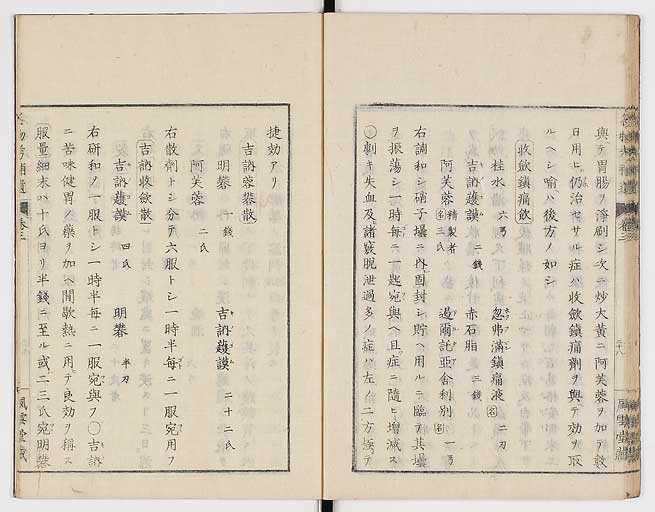 與テ胃腸ヲ淨刷シ次テ炒大黃ニ阿芙蓉ヲ加テ數
日用ヒ仍治セサル症ハ收斂鎮痛劑ヲ與テ効ヲ取
ルヘシ喻ハ後方ノ如シ
收斂鎮痛飲
桂水 六弓 忽弗滿鎮痛液 名 二刀
吉訥護謨 二錢 赤石脂 三錢
阿芙蓉 精製者 名三氏 過爾託亞舍利別 名 一弓
右調和シ硝子壜ニ內固封シ貯ヘ用ルニ臨テ其壜
ヲ振蕩シ一時每ニ一匙宛與ヘ且症ニ隨ヒ增減ス
○劇キ失血及諸竅脫泄過多ノ症ハ左ノ二方極テ
捷効アリ
吉訥蓉礬散
明礬 一錢 吉訥護謨 二十二氏
阿芙蓉 二氏
右散劑トシ分テ六服トシ一時半每ニ一服宛用フ
吉訥收斂散
吉訥護謨 四氏 明礬 半刀
右研和ノ一服トシ一時半每ニ一服宛與フ○吉訥
ニ苦味健胃ノ藥ヲ加ヘ間歇熱ニ用テ良効ヲ稱ス
服量 細末ハ十氏ヨリ半錢ニ至ル或二三氏宛明礬
卷三
風雲堂藏